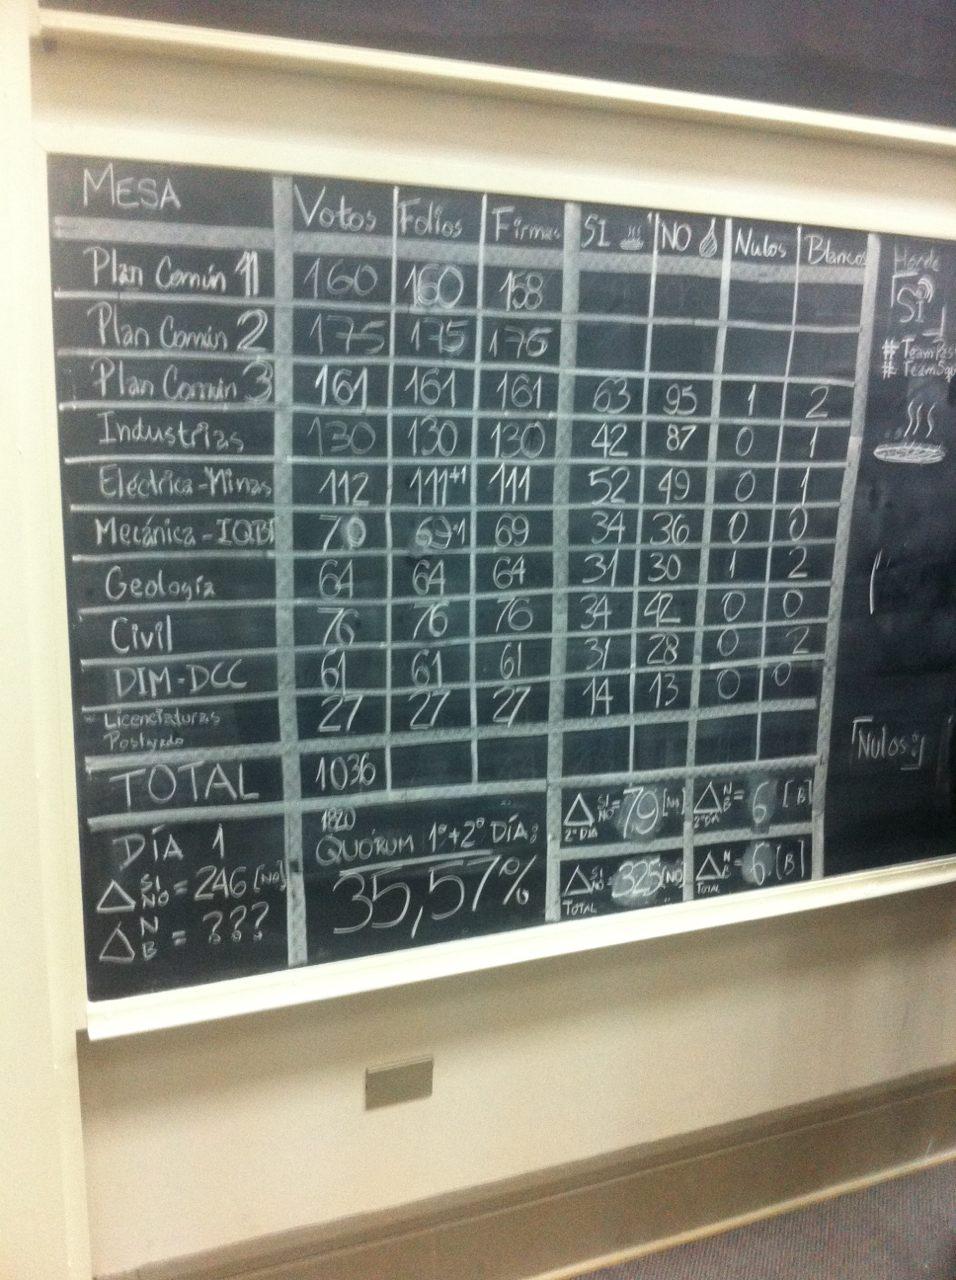 MESA Votos Folios Firmas SI NO Nulos Blancos
Plan Común 1 160 160 158
Plan Común 2 175 175 176
Plan Común 3 161 161 161 63 95 1 2
Industrias 130 130 130 42 87 0 1
Eléctrica-Minas 112 111+1 111 52 49 0 1
Mecánica-IQBT 70 69+1 69 34 36 0 0
Geología 64 64 64 31 30 1 2
Civil 76 76 76 34 42 0 0
DIM-DCC 61 61 61 31 28 0 2
Licenciaturas 27 27 27 14 13 0 0
Postgrado
TOTAL 1036
DÍA 1
Δ SI NO = 246 [NO]
Δ N B = ???
1820
QUÓRUM 1º+2º DÍA:
35,57%
Δ SI NO = 79 [NO]
2º DÍA
Δ N B = 6 [B]
2º DÍA
Δ SI NO = 325 [NO]
TOTAL
Δ N B = 6 [B]
TOTAL
SI
# Team
# Team
[Nulos:]